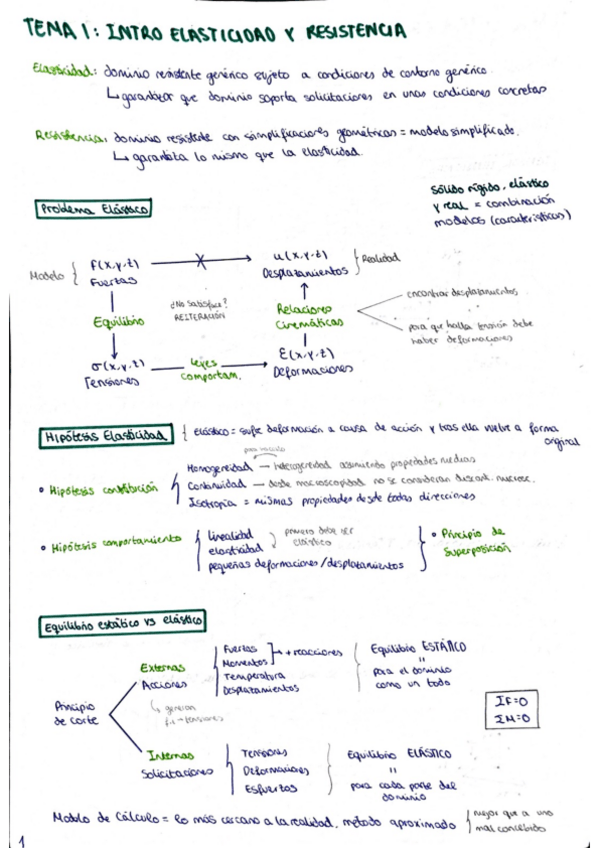 TEMA 1: INTRO ELASTICIDAD Y RESISTENCIA
Elasticidad: dominio resistente genérico sujeto a condiciones de contorno genérico.
garantizar que dominio soporta solicitaciones en unas condiciones concretas
Resistencia: dominio resistente con simplificaciones geométricas = modelo simplificado.
garantiza lo mismo que la elasticidad.
sólido rígido, elástico
y real = combinación
modelos (característicos)
Problema Elástico
Modelo
f(x,y,z)
Fuerzas
u(x,y,z)
Desplazamientos
Realidad
Equilibrio
¿No satisface?
REITERACIÓN
Relaciones
Cinemáticas
encontrar desplazamientos
para que halla tensión debe
haber deformaciones
σ(x,y,z)
Tensiones
leyes
comportam.
ε(x,y,z)
Deformaciones
Hipótesis Elasticidad
elástico = sufre deformación a causa de acción y tras ella vuelve a forma
original
• Hipótesis constitución
Homogeneidad — heterogeneidad asumiendo propiedades medias
Continuidad — desde macroscopidad no se consideran discont. microsc.
Isotropía = mismas propiedades desde todas direcciones
• Hipótesis comportamiento
linealidad
elasticidad
pequeñas deformaciones/desplazamientos
primero debe ser
elástico
• Principio de
Superposición
Equilibrio estático vs elástico
Principio
de corte
Externas
Acciones
generan
Fuerzas
Momentos
+ reacciones
Temperatura
Desplazamientos
Equilibrio ESTÁTICO
=
para el dominio
como un todo
ΣF=0
ΣM=0
Internas
Solicitaciones
Tensiones
Deformaciones
Esfuerzos
Equilibrio ELÁSTICO
=
para cada parte del
dominio
Modelo de Cálculo = lo más cercano a la realidad. método aproximado
mejor que a uno
mal concebido
1